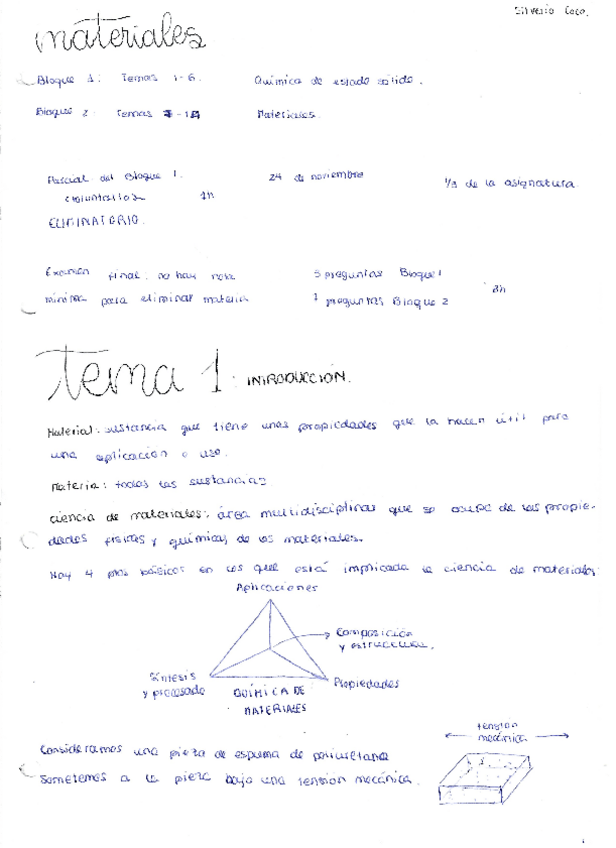 Silverio Coco.
materiales
Bloque 1: Temas 1-6. Química de estado sólido.
Bloque 2: Temas Materiales.
Parcial del Bloque 1. 24 de noviembre 1/3 de la asignatura.
1h
ELIMINATORIO.
Examen final: no hay nota 5 preguntas Bloque 1
mínima para eliminar materia 7 preguntas Bloque 2
3h
tema 1: INTRODUCCIÓN.
Material: sustancia que tiene unas propiedades que la hacen útil para
una aplicación o uso.
Materia: todas las sustancias
ciencia de materiales: área multidisciplinar que se ocupa de las propie-
dades físicas y químicas de los materiales.
Hay 4 ptos básicos en los que está implicada la ciencia de materiales
Aplicaciones
Composición
y estructura.
Síntesis
y procesado
Propiedades
QUÍMICA DE
MATERIALES
tensión
mecánica
Consideramos una pieza de espuma de poliuretano
Sometemos a la pieza bajo una tensión mecánica.